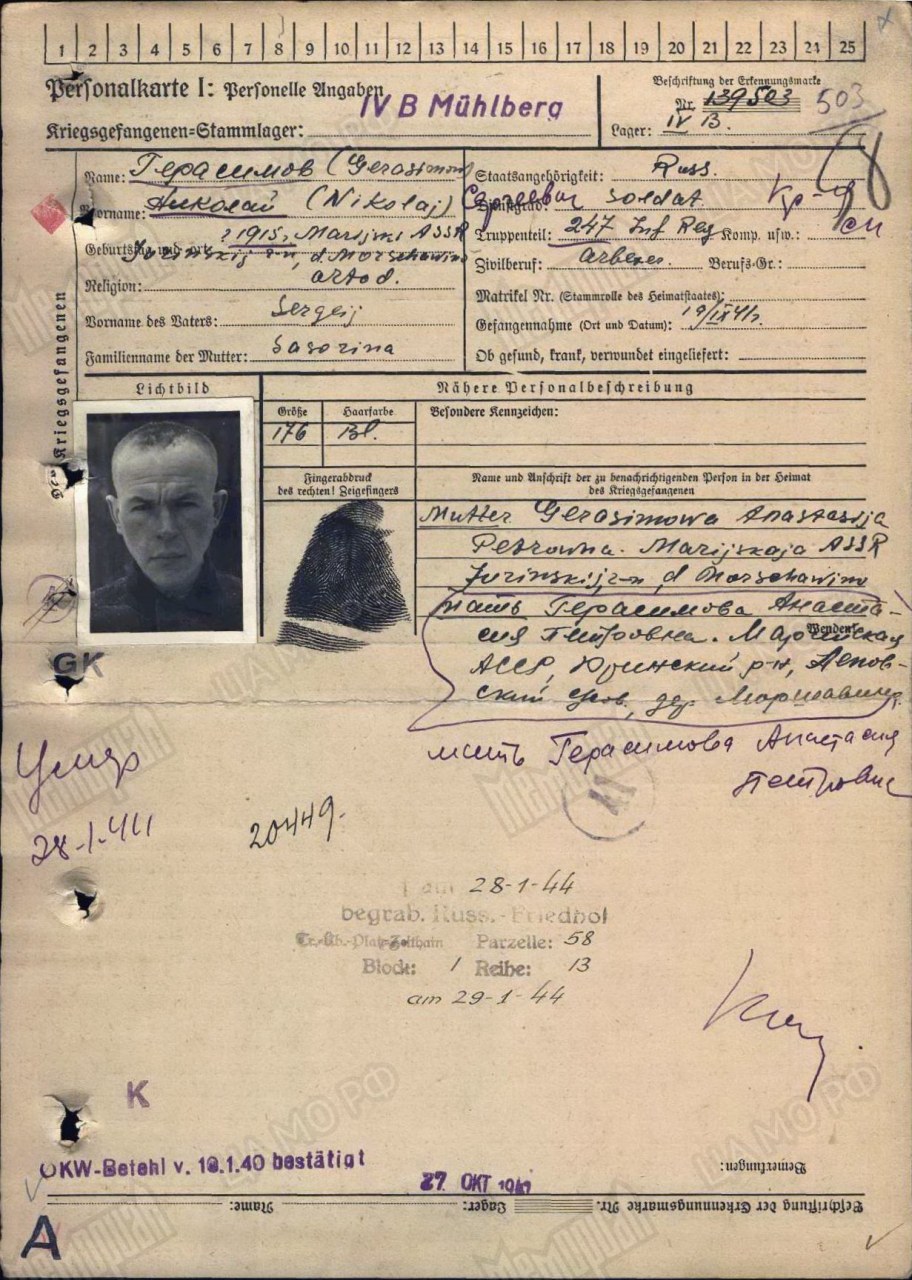 1 2 3 4 5 6 7 8 9 10 11 12 13 14 15 16 17 18 19 20 21 22 23 24 25
Personalkarte I: Personelle Angaben
IV B Mühlberg
Kriegsgefangenen-Stammlager:
Beschriftung der Erkennungsmarke
Nr. 139503
503
Lager: IV B.
Name: Герасимов (Gerasimow)
Vorname: Николай (Nikolaj) Сергеевич
Geburtstag und -ort: 1915, Marijski ASSR
d Morschawino
Religion: ortod.
Vorname des Vaters: Sergeij
Familienname der Mutter: Sasorina
Staatsangehörigkeit: Russ.
Dienstgrad: Soldat Кр-ец
Truppenteil: 247 Inf Reg Komp. usw.:
Zivilberuf: Berufs-Gr.:
Matrikel Nr. (Stammrolle des Heimatstaates):
Gefangennahme (Ort und Datum): 19/IX 41
Ob gesund, krank, verwundet eingeliefert:
Des Kriegsgefangenen
Lichtbild
Nähere Personalbeschreibung
Größe
176
Haarfarbe
Bl.
Besondere Kennzeichen:
Fingerabdruck
des rechten! Zeigefingers
Name und Anschrift der zu benachrichtigenden Person in der Heimat
des Kriegsgefangenen
Mutter Gerasimowa Anastasija
Petrowna. Marijskaja ASSR
Jurinskij r-n, d Morschawino
мать Герасимова Анаста-
сия Петровна. Марийская
Wenden!
АССР, Юринский р-н,
ский сов., дер.
мать Герасимова Анастасия
Петровна
GK
Умер
28-1-44
20449.
† am 28-1-44
begrab. Russ.-Friedhof
Tr.-Üb.-Platz-Zeithain Parzelle: 58
Block: 1 Reihe: 13
am 29-1-44
K
OKW-Befehl v. 10.1.40 bestätigt
27. OKT 1941
Bemerkungen:
Beschriftung der Erkennungsmarke Nr. Lager: Name:
A
Мемориал
ЦАМО РФ